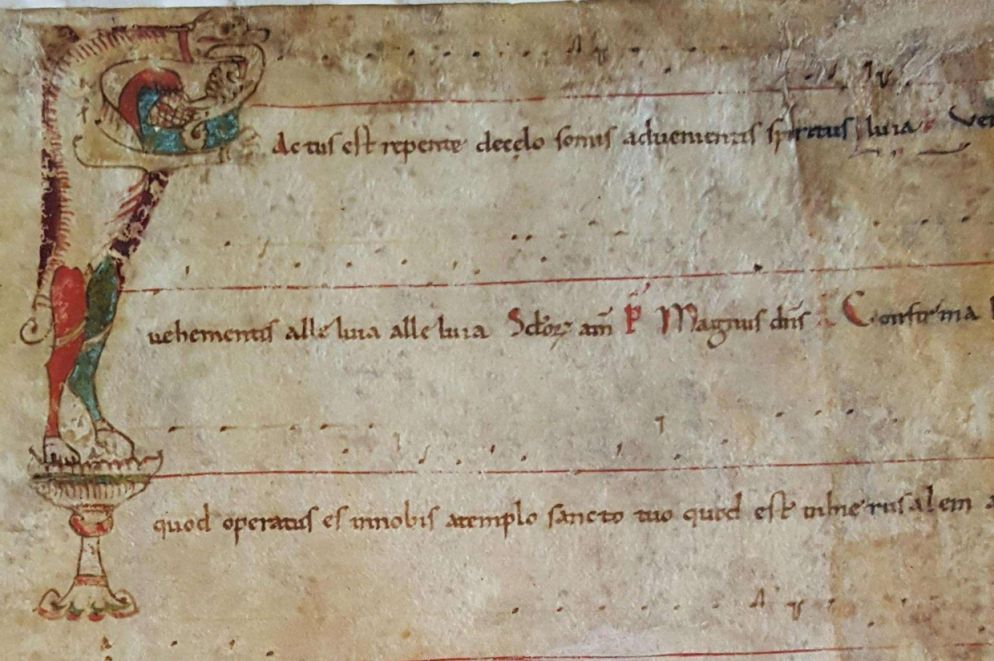 Factus est repente decęlo sonus aduenientis spiritus luia
uehementis alleluia alleluia Magnus dns Confirma
quod operatus es innobis atemplo sancto tuo quod est inhierusalem